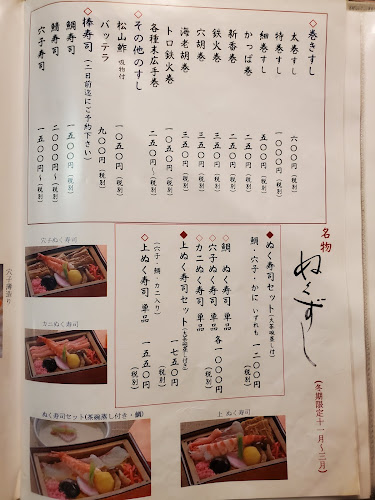 ◇巻きすし
太巻すし 六〇〇円(税別)
特巻すし 一〇〇〇円(税別)
細巻すし 五〇〇円(税別)
かっぱ巻 二五〇円(税別)
新香巻 二五〇円(税別)
鉄火巻 三五〇円(税別)
穴胡巻 三五〇円(税別)
海老胡巻 三五〇円(税別)
トロ鉄火巻
各種末広手巻 二五〇円〜(税別)
◇その他のすし
松山鮓 吸物付 一〇五〇円(税別)
バッテラ 九〇〇円(税別)
◇棒寿司(二日前迄にご予約下さい)
鯛寿司 一五〇〇円(税別)
鯖寿司 二〇〇〇円〜(税別)
穴子寿司 一五〇〇円〜(税別)
名物
ぬくずし
(冬期限定十一月〜三月)
◆ぬく寿司セット(大茶碗蒸し付)
鯛・穴子・かに いずれも 一二〇〇円(税別)
◇鯛 ぬく寿司 単品
◇穴子ぬく寿司 単品 各一〇〇〇円
◇カニぬく寿司 単品 (税別)
◆上ぬく寿司セット(大茶碗蒸し付き)
一七五〇円(税別)
(穴子・鯛・カニ入り)
◇上ぬく寿司 単品 一五五〇円(税別)
穴子ぬく寿司
カニぬく寿司
ぬく寿司セット(茶碗蒸し付き・鯛)
上 ぬく寿司
穴子薄造り